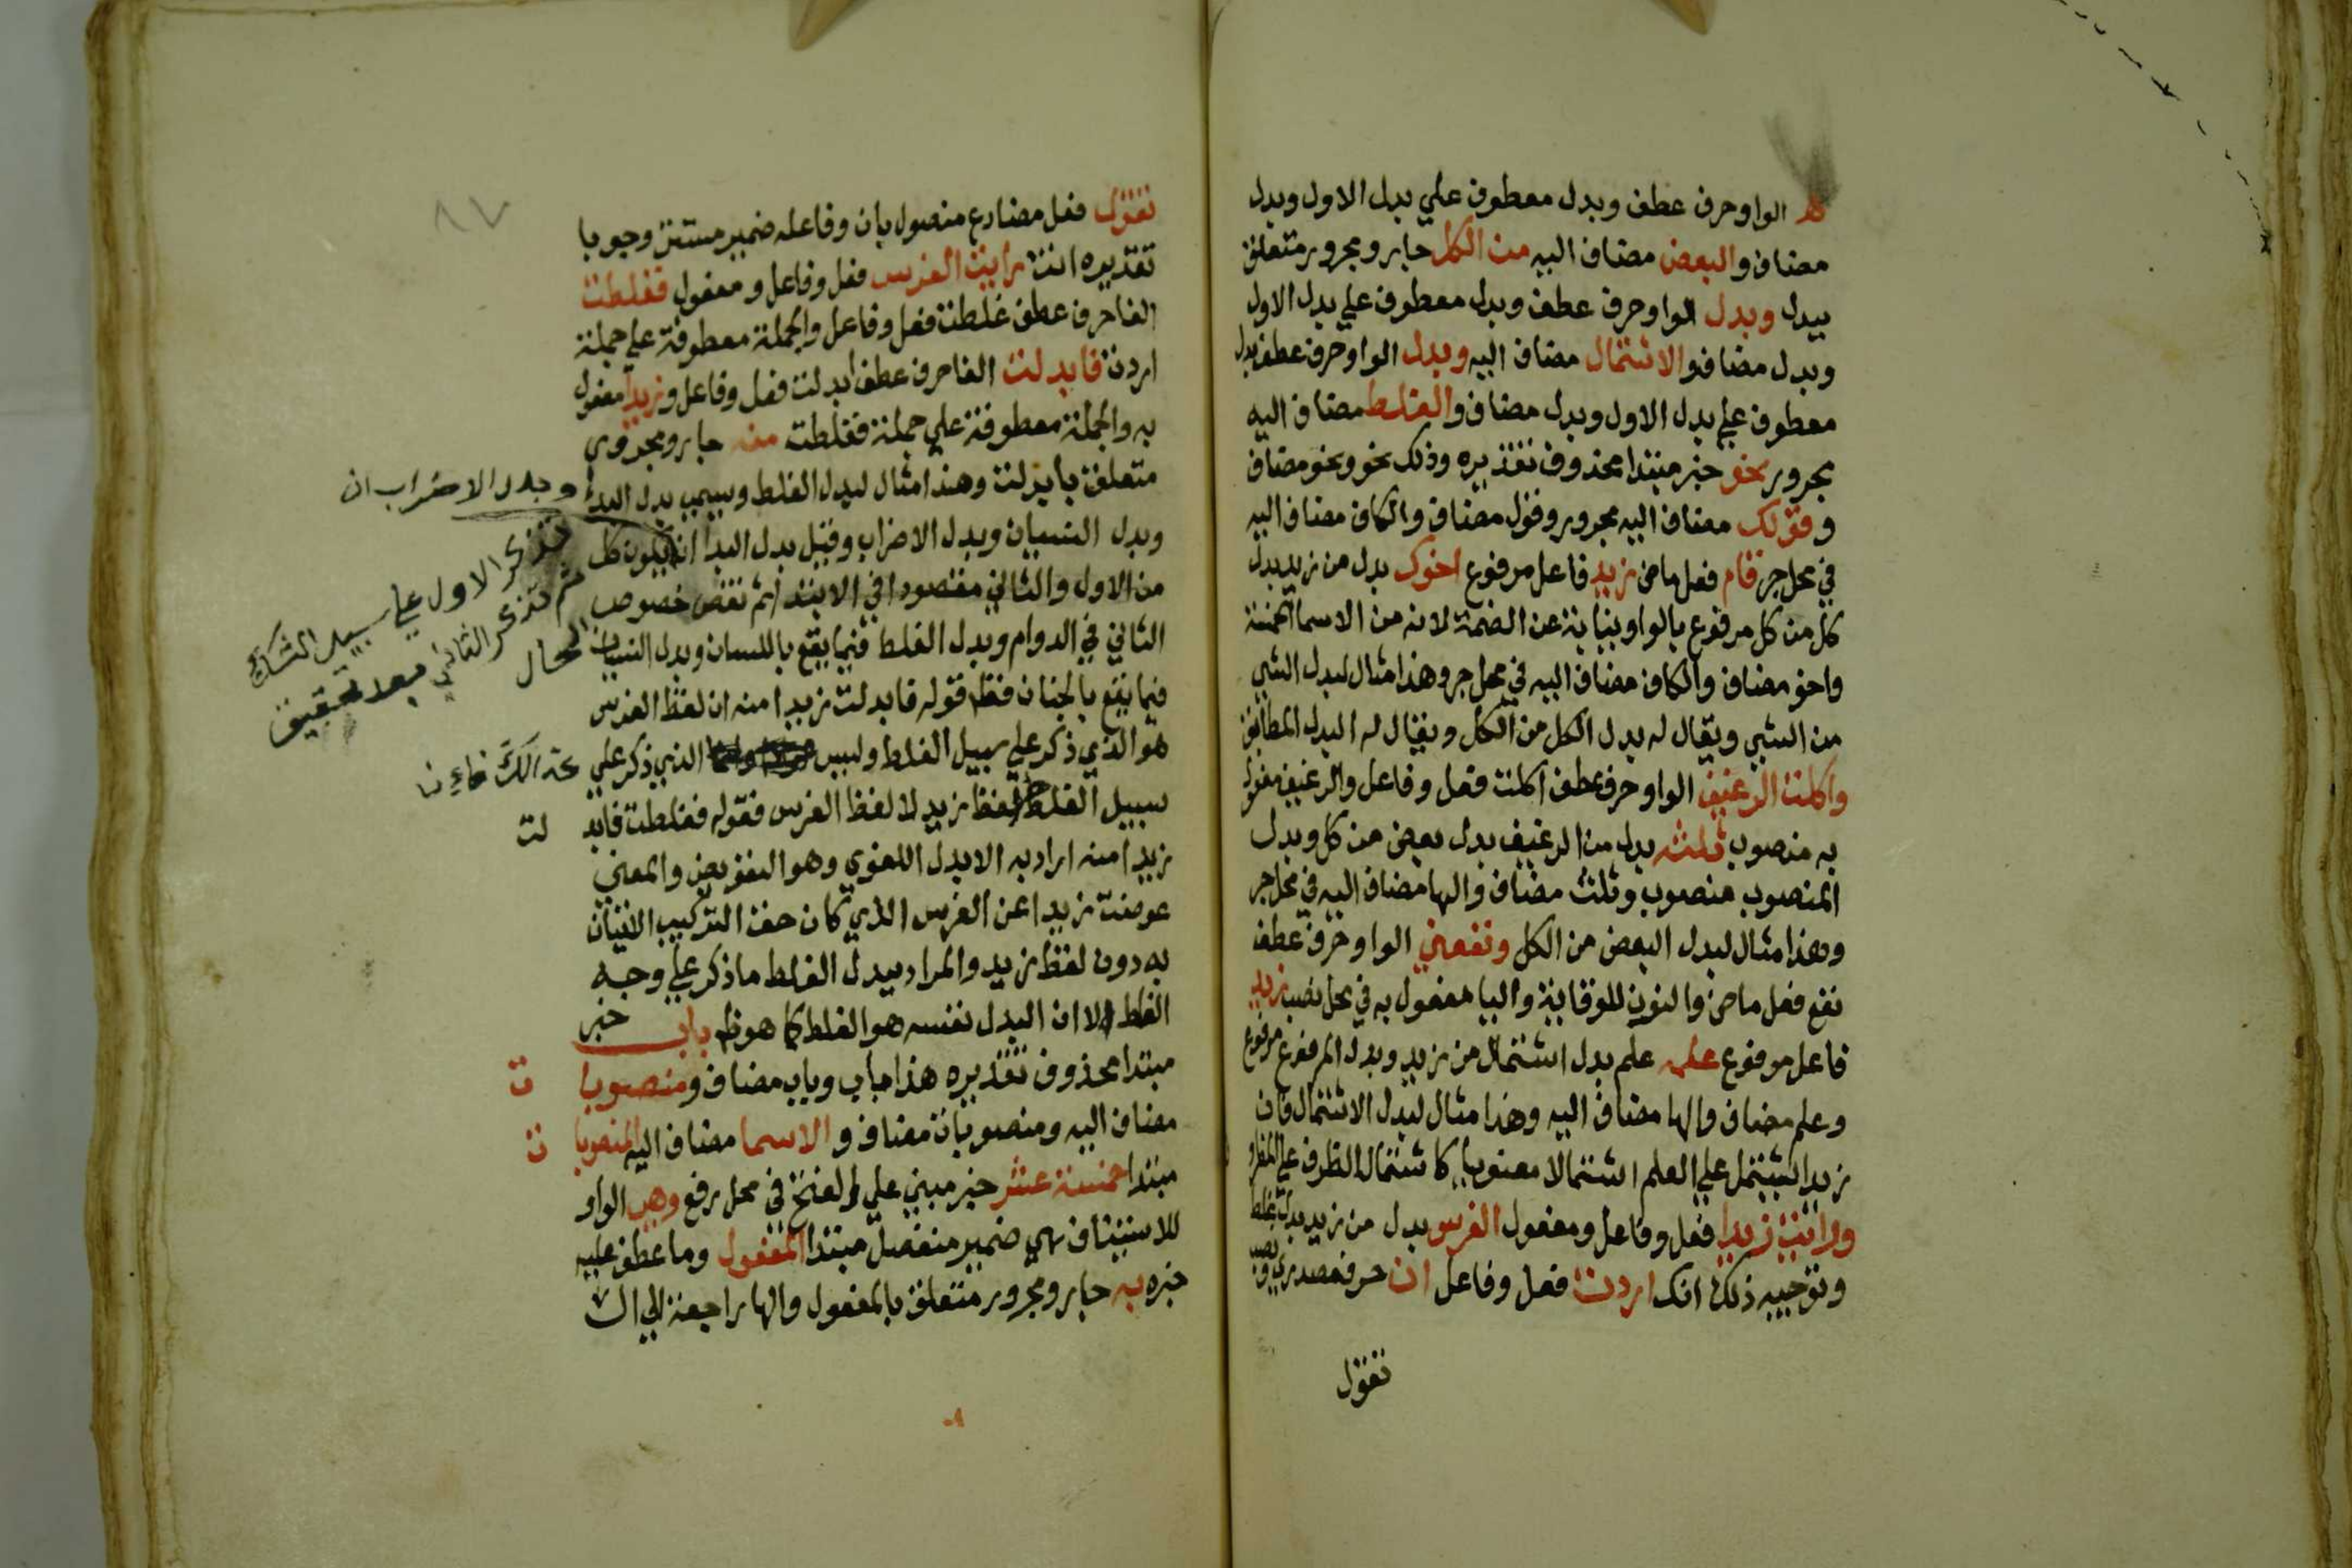 الواو حرف عطف وبدل معطوف علي بدل الاول وبدل
مضاف والبعض مضاف اليه من الكل جار ومجرور متعلق
ببدل وبدل الواو حرف عطف وبدل معطوف علي بدل الاول
وبدل مضاف والاشتمال مضاف اليه وبدل الواو حرف عطف بدل
معطوف علي بدل الاول وبدل مضاف والغلط مضاف اليه
مجرور نحو خبر مبتدا محذوف تقديره وذلك نحو ونحو مضاف
وقولك مضاف اليه مجرور وقول مضاف والكاف مضاف اليه
في محل جر قام فعل ماض زيد فاعل مرفوع اخوك بدل من زيد بدل
كل من كل مرفوع بالواو نيابة عن الضمة لانه من الاسما الخمسة
واخو مضاف والكاف مضاف اليه في محل جر وهذا مثال لبدل الشي
من الشي ويقال له بدل الكل من الكل ويقال له البدل المطابق
واكلت الرغيف الواو حرف عطف اكلت فعل وفاعل والرغيف مفعول
به منصوب ثلثه بدل من الرغيف بدل بعض من كل وبدل
المنصوب منصوب وثلث مضاف والها مضاف اليه في محل جر
وهذا مثال لبدل البعض من الكل ونفعني الواو حرف عطف
نفع فعل ماض والنون للوقاية واليا مفعول به في محل نصب زيد
فاعل مرفوع علمه علم بدل اشتمال من زيد وبدل المرفوع مرفوع
وعلم مضاف والها مضاف اليه وهذا مثال لبدل الاشتمال فان
زيدا يشتمل علي العلم اشتمالا معنويا كاشتمال الظرف علي المظرو
ورايت زيدا فعل وفاعل ومفعول الفرس بدل من زيد بدل غلط
وتوجيه ذلك انك اردت فعل وفاعل ان حرف مصدري ونصب
تقول
تقول فعل مضارع منصوب بان وفاعله ضمير مستتر وجوبا
تقديره انت رايت الفرس فعل وفاعل ومفعول فغلطت
الفا حرف عطف غلطت فعل وفاعل والجملة معطوفة علي جملة
اردت فابدلت الفا حرف عطف ابدلت فعل وفاعل وزيدا مفعول
به والجملة معطوفة علي جملة فغلطت منه جار ومجرور
متعلق بابدلت وهذا مثال لبدل الغلط ويسمي بدل البدا
وبدل الاضراب ان
وبدل النسيان وبدل الاضراب وقيل بدل البدا ان يكون كل
من الاول والثاني مقصودا في الابتدا ثم نقض خصوص
تذكر الاول علي سبيل الشك
ثم تذكر الثاني بعد تحقيق
الحال
الثاني في الدوام وبدل الغلط فيما يقع باللسان وبدل النسيان
فيما يقع بالجنان فقط قوله فابدلت زيدا منه ان لفظ الفرس
هو الذي ذكر علي سبيل الغلط وليس الذي ذكر علي
سبيل الغلط لفظ زيد لا لفظ الفرس فقوله فغلطت فابد لت
زيدا منه اراد به الابدل اللغوي وهو التعويض والمعني
عوضت زيدا عن الفرس الذي كان حق التركيب الاتيان
به دون لفظ زيد والمراد ببدل الغلط ما ذكر علي وجه
الغلط لا ان البدل نفسه هو الغلط كما هو ظ باب خبر
مبتدا محذوف تقديره هذا باب وباب مضاف ومنصوبا ت
مضاف اليه ومنصوبات مضاف والاسما مضاف اليه المنصوبا ت
مبتدا خمسة عشر خبر مبني علي الفتح في محل رفع وهي الواو
للاستيناف هي ضمير منفصل مبتدا المفعول وما عطف عليه
خبره به جار ومجرور متعلق بالمفعول والها راجعة الي ال